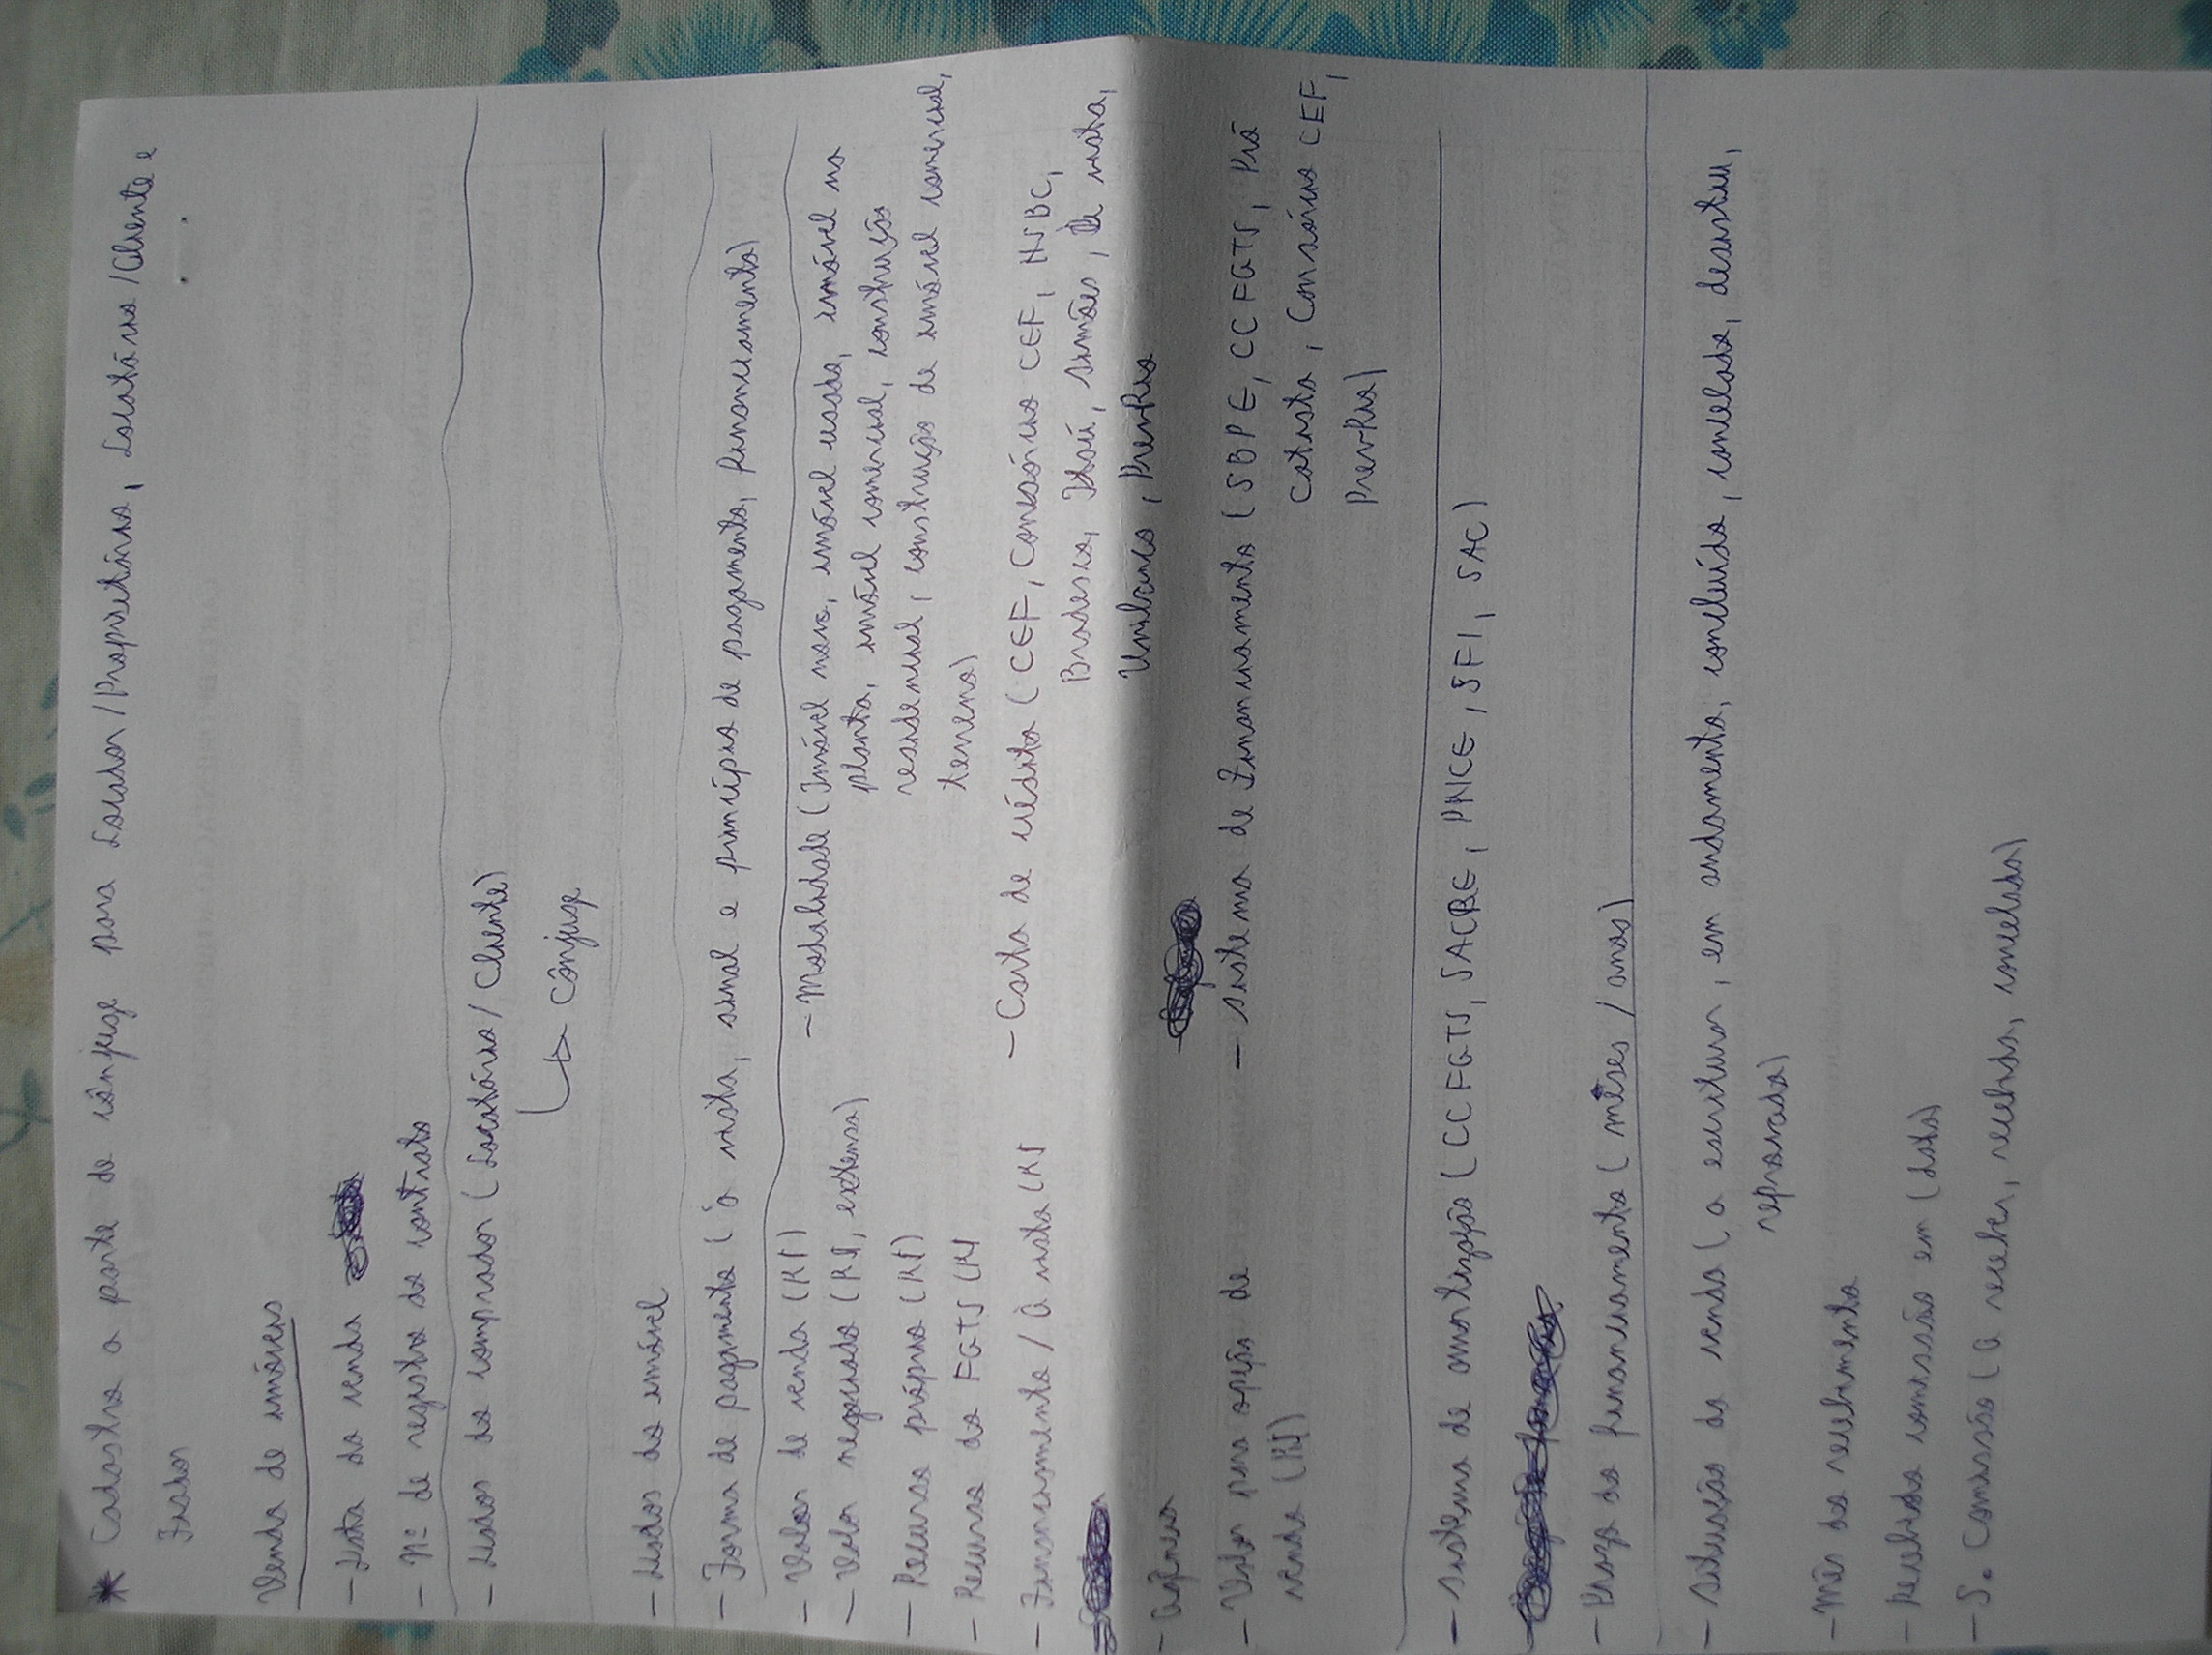 * Cadastro a parte de cônjuge para Locador/Proprietário, Locatário/Cliente e
Fiador
Venda de imóveis
- Data da venda
- Nº de registro do contrato
- Dados do comprador (Locatário/Cliente)
↳ Cônjuge
- Dados do imóvel
- Forma de pagamento (à vista, sinal e princípio de pagamento, financiamento)
- Valor de venda (R$)
- Valor negociado (R$, extenso)
- Recurso próprio (R$)
- Recurso do FGTS (R$
- Financiamento / À vista (R$
- Modalidade (Imóvel novo, imóvel usado, imóvel na
planta, imóvel comercial, construção
residencial, construção de imóvel comercial,
terreno)
- Carta de crédito (CEF, Consórcio CEF, HSBC,
Bradesco, Itaú, simões, à vista,
Unibanco, PreviRio
- Agência
- Valor para opção de
venda (R$)
- Sistema de Financiamento (SBPE, CCFGTS, Pró
Cotista, Consórcio CEF,
PreviRio)
- Sistema de amortização (CCFGTS, SACRE, PRICE, SFI, SAC)
- Prazo do financiamento (mêses / anos)
- Situação da venda (a escriturar, em andamento, concluída, cancelada, desistiu,
reprovada)
- Mês do recebimento
- Recebido comissão em (data)
- S. Comissão (a receber, recebido, cancelado)